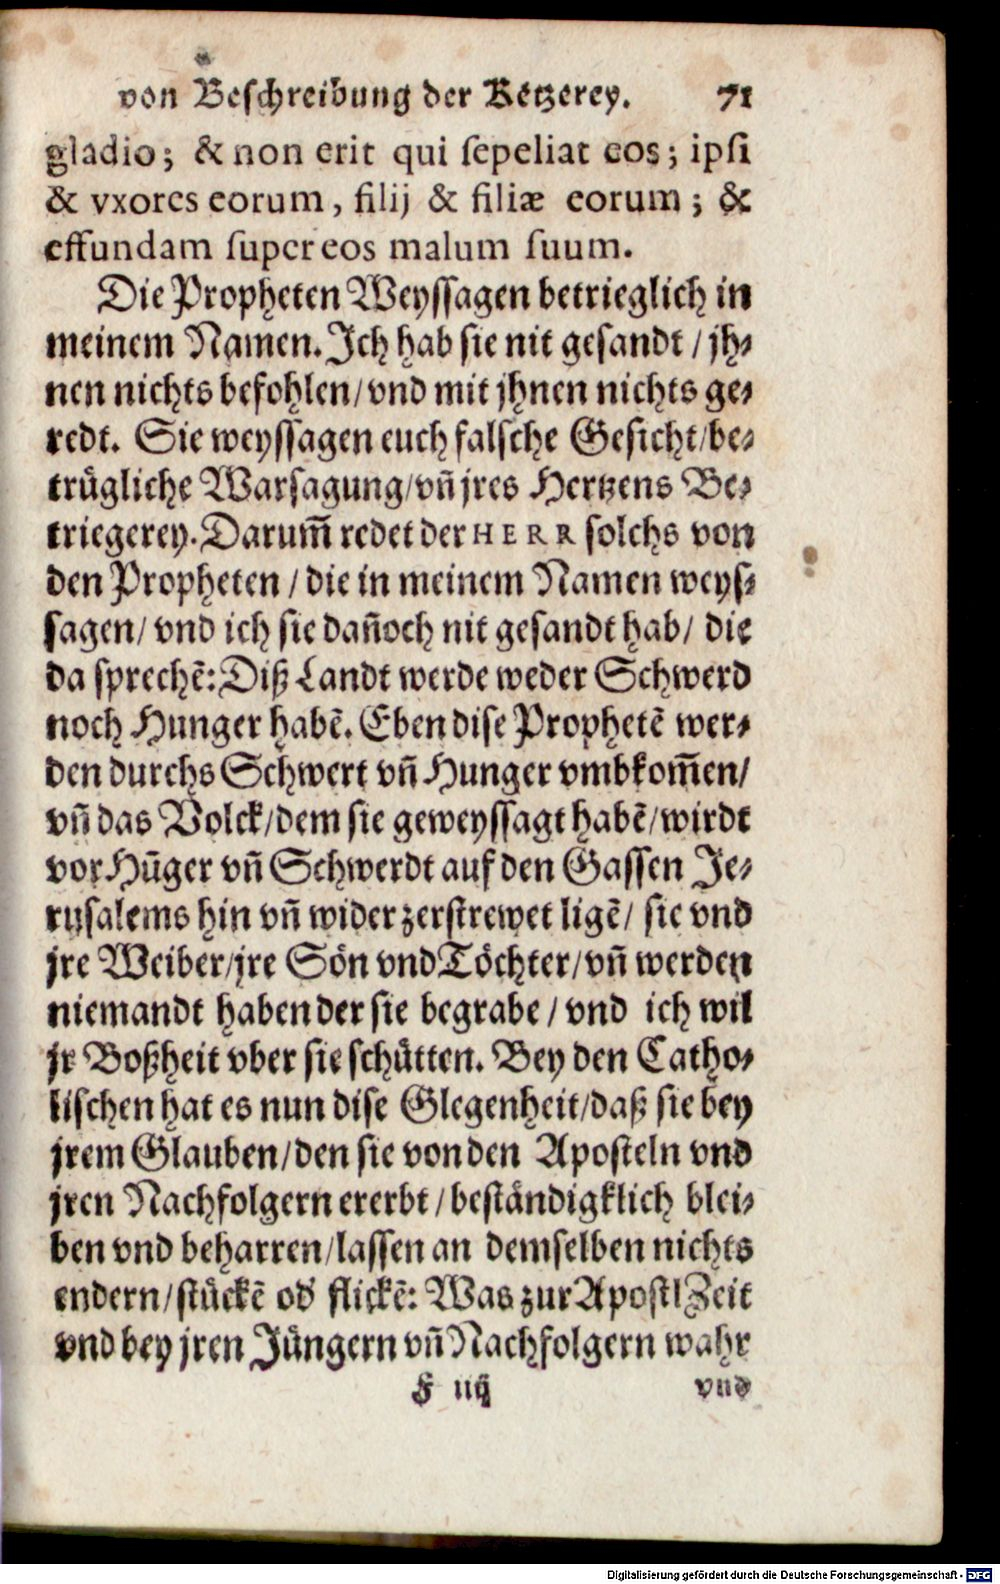 von Beschreibung der Ketzerey. 71
gladio; & non erit qui sepeliat eos; ipsi
& vxores eorum, filij & filiæ eorum; &
effundam super eos malum suum.
Die Propheten Weyssagen betrieglich in
meinem Namen. Ich hab sie nit gesandt / jh⸗
nen nichts befohlen / vnd mit jhnen nichts ge⸗
redt. Sie weyssagen euch falsche Gesicht / be⸗
trügliche Warsagung / vñ jres Hertzens Be⸗
triegerey. Darum̃ redet der HERR solchs von
den Propheten / die in meinem Namen weys⸗
sagen / vnd ich sie dañoch nit gesandt hab / die
da sprechẽ: Diß Landt werde weder Schwerd
noch Hunger habẽ. Eben dise Prophetẽ wer⸗
den durchs Schwert vñ Hunger vmbkom̃en /
vñ das Volck / dem sie geweyssagt habẽ / wirdt
vor Hũger vñ Schwerdt auf den Gassen Je⸗
rusalems hin vñ wider zerstrewet ligẽ / sie vnd
jre Weiber / jre Sön vnd Töchter / vñ werden
niemandt haben der sie begrabe / vnd ich wil
jr Boßheit vber sie schütten. Bey den Catho⸗
lischen hat es nun dise Glegenheit / daß sie bey
jrem Glauben / den sie von den Aposteln vnd
jren Nachfolgern ererbt / beständigklich blei⸗
ben vnd beharren / lassen an demselben nichts
endern / stückẽ od' flickẽ: Was zur Apostl Zeit
vnd bey jren Jüngern vñ Nachfolgern wahr
F iiij vnd
Digitalisierung gefördert durch die Deutsche Forschungsgemeinschaft - DFG